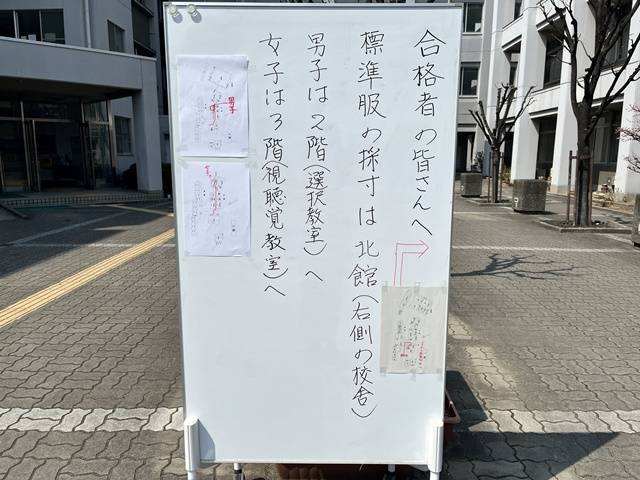 合格者の皆さんへ
標準服の採寸は北館(右側の校舎)
男子は2階(選択教室)へ
女子は3階(視聴覚教室)へ
男子